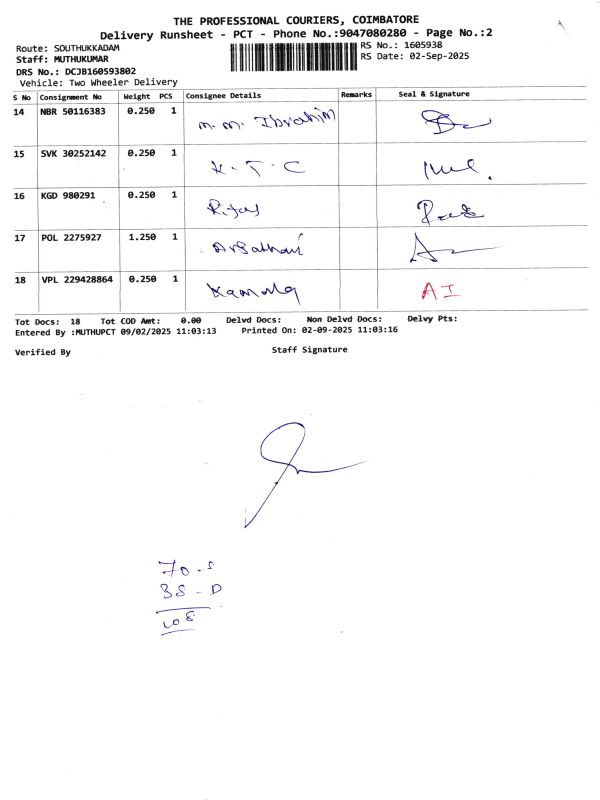 THE PROFESSIONAL COURIERS, COIMBATORE
Delivery Runsheet - PCT - Phone No.:9047080280 - Page No.:2
Route: SOUTHUKKADAM
RS No.: 1605938
Staff: MUTHUKUMAR
RS Date: 02-Sep-2025
DRS No.: DCJB160593802
Vehicle: Two Wheeler Delivery
S No Consignment No Weight PCS Consignee Details Remarks Seal & Signature
14 NBR 50116383 0.250 1 M. M. Ibrahim
15 SVK 30252142 0.250 1 K. T. C
16 KGD 980291 0.250 1
17 POL 2275927 1.250 1
18 VPL 229428864 0.250 1 AI
Tot Docs: 18 Tot COD Amt: 0.00 Delvd Docs: Non Delvd Docs: Delvy Pts:
Entered By :MUTHUPCT 09/02/2025 11:03:13 Printed On: 02-09-2025 11:03:16
Verified By Staff Signature
70 - S
38 - D
108